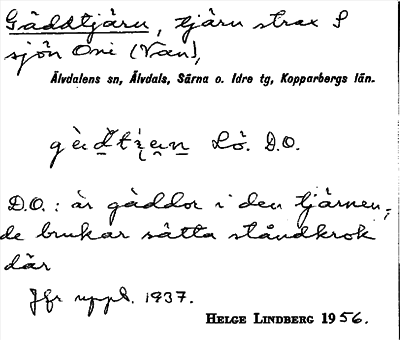 Gäddtjärn, tjärn strax S
sjön Oni (Van),
Älvdalens sn, Älvdals, Särna o. Idre tg, Kopparbergs län.
Lö. D.O.
D.O.: är gäddor i den tjärnen,
de brukar sätta ståndkrok
där
Jfr uppl. 1937.
HELGE LINDBERG 1956.